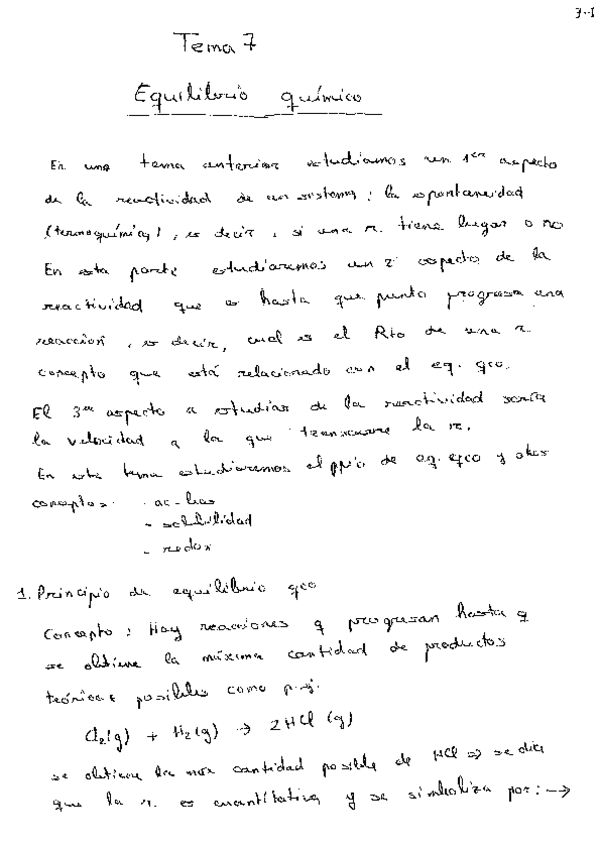 7-1
Tema 7
Equilibrio químico
En una tema anterior estudiamos un 1er aspecto
de la reactividad de un sistema: la espontaneidad
(termoquímica), es decir, si una r. tiene lugar o no
En esta parte estudiaremos un 2º aspecto de la
reactividad que es hasta que punto progresa una
reacción, es decir, cual es el Rto de una r.
concepto que está relacionado con el eq. qco.
El 3er aspecto a estudiar de la reactividad sería
la velocidad a la que transcurre la r.
En este tema estudiaremos el ppio de eq. qco y otros
conceptos: - ac-bas
- solubilidad
- redox
1. Principio de equilibrio qco
Concepto: Hay reacciones q progresan hasta q
se obtiene la máxima cantidad de productos
teóricos posibles como p.ej.
Cl2(g) + H2(g) → 2HCl (g)
se obtiene la max cantidad posible de HCl ⇒ se dice
que la r. es cuantitativa y se simboliza por: →